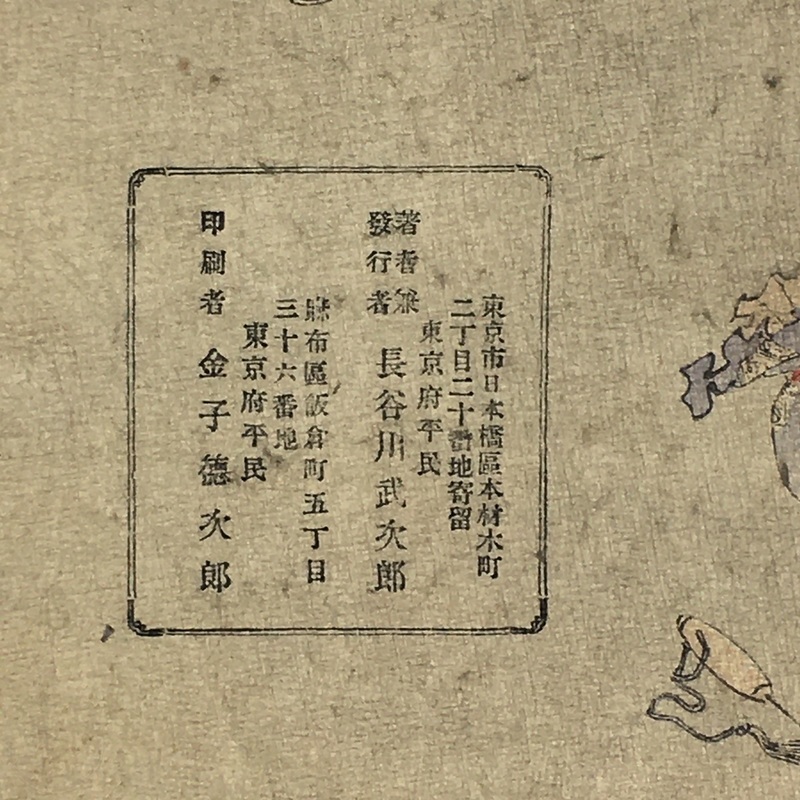 東京市日本橋區本材木町
二丁目二十番地寄留
東京府平民
著者兼
發行者
長谷川武次郎
麻布區飯倉町五丁目
三十六番地
東京府平民
印刷者 金子德次郎